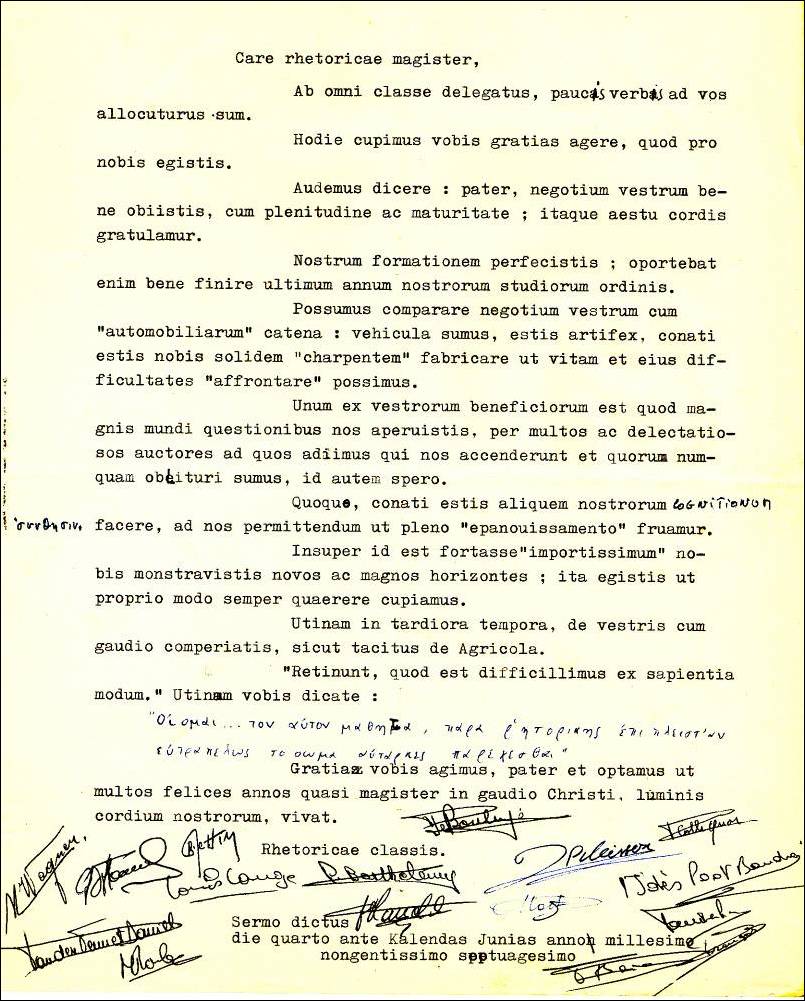 Care rhetoricae magister,
Ab omni classe delegatus, paucis verbis ad vos
allocuturus sum.
Hodie cupimus vobis gratias agere, quod pro
nobis egistis.
Audemus dicere : pater, negotium vestrum be-
ne obiistis, cum plenitudine ac maturitate ; itaque aestu cordis
gratulamur.
Nostrum formationem perfecistis ; oportebat
enim bene finire ultimum annum nostrorum studiorum ordinis.
Possumus comparare negotium vestrum cum
"automobiliarum" catena : vehicula sumus, estis artifex, conati
estis nobis solidem "charpentem" fabricare ut vitam et eius dif-
ficultates "affrontare" possimus.
Unum ex vestrorum beneficiorum est quod ma-
gnis mundi questionibus nos aperuistis, per multos ac delectatio-
sos auctores ad quos adiimus qui nos accenderunt et quorum num-
quam oblituri sumus, id autem spero.
Quoque, conati estis aliquem nostrorum COGNITIONUM
σύνθησιν, facere, ad nos permittendum ut pleno "epanouissamento" fruamur.
Insuper id est fortasse"importissimum" no-
bis monstravistis novos ac magnos horizontes ; ita egistis ut
proprio modo semper quaerere cupiamus.
Utinam in tardiora tempora, de vestris cum
gaudio comperiatis, sicut tacitus de Agricola.
"Retinunt, quod est difficillimus ex sapientia
modum." Utinam vobis dicate :
"Οἶομαι ... τον αὐτον μαθητα, παρα ῥητορικης ἐπι πλειστ'ὰν
εὐτραπελως το σωμα αὐταρκες παρεχεσθαι"
Gratias vobis agimus, pater et optamus ut
multos felices annos quasi magister in gaudio Christi, luminis
cordium nostrorum, vivat.
Rhetoricae classis.
M Wagner.
Bettin
Louis Lange
P. Barthélemy
Sermo dictus
die quarto ante Kalendas Junias anno millesimo
nongentissimo septuagesimo
Vanden Daniel